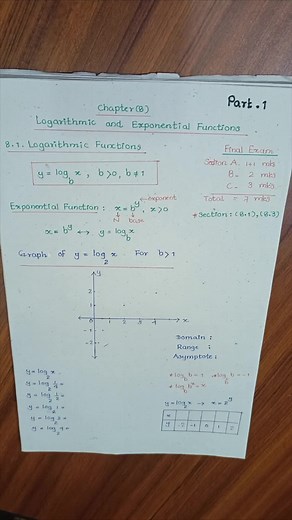 Part.1
Chapter(8)
Logarithmic and Exponential Functions
8.1. Logarithmic Functions
Final Exam
Section A. 1x1 mks
B. 2 mks
C. 3 mks
Total = 7 mks
* Section: (8.1), (8.3)
y = log_b x , b > 0, b ≠ 1
exponent
Exponential Function : x = b^y, x > 0
N base
x = b^y ↔ y = log_b x
Graph of y = log_2 x For b > 1
y
2
1
0 1 2 3 4 x
-1
-2
Domain :
Range :
Asymptote :
y = log_2 x
y = log_2 1/4 =
y = log_2 1/2 =
y = log_2 1 =
y = log_2 2 =
y = log_2 4 =
* log_b b = 1
* log_b b^x = x
y = log_2 x → x = 2^y
x
y -2 -1 0 1 2